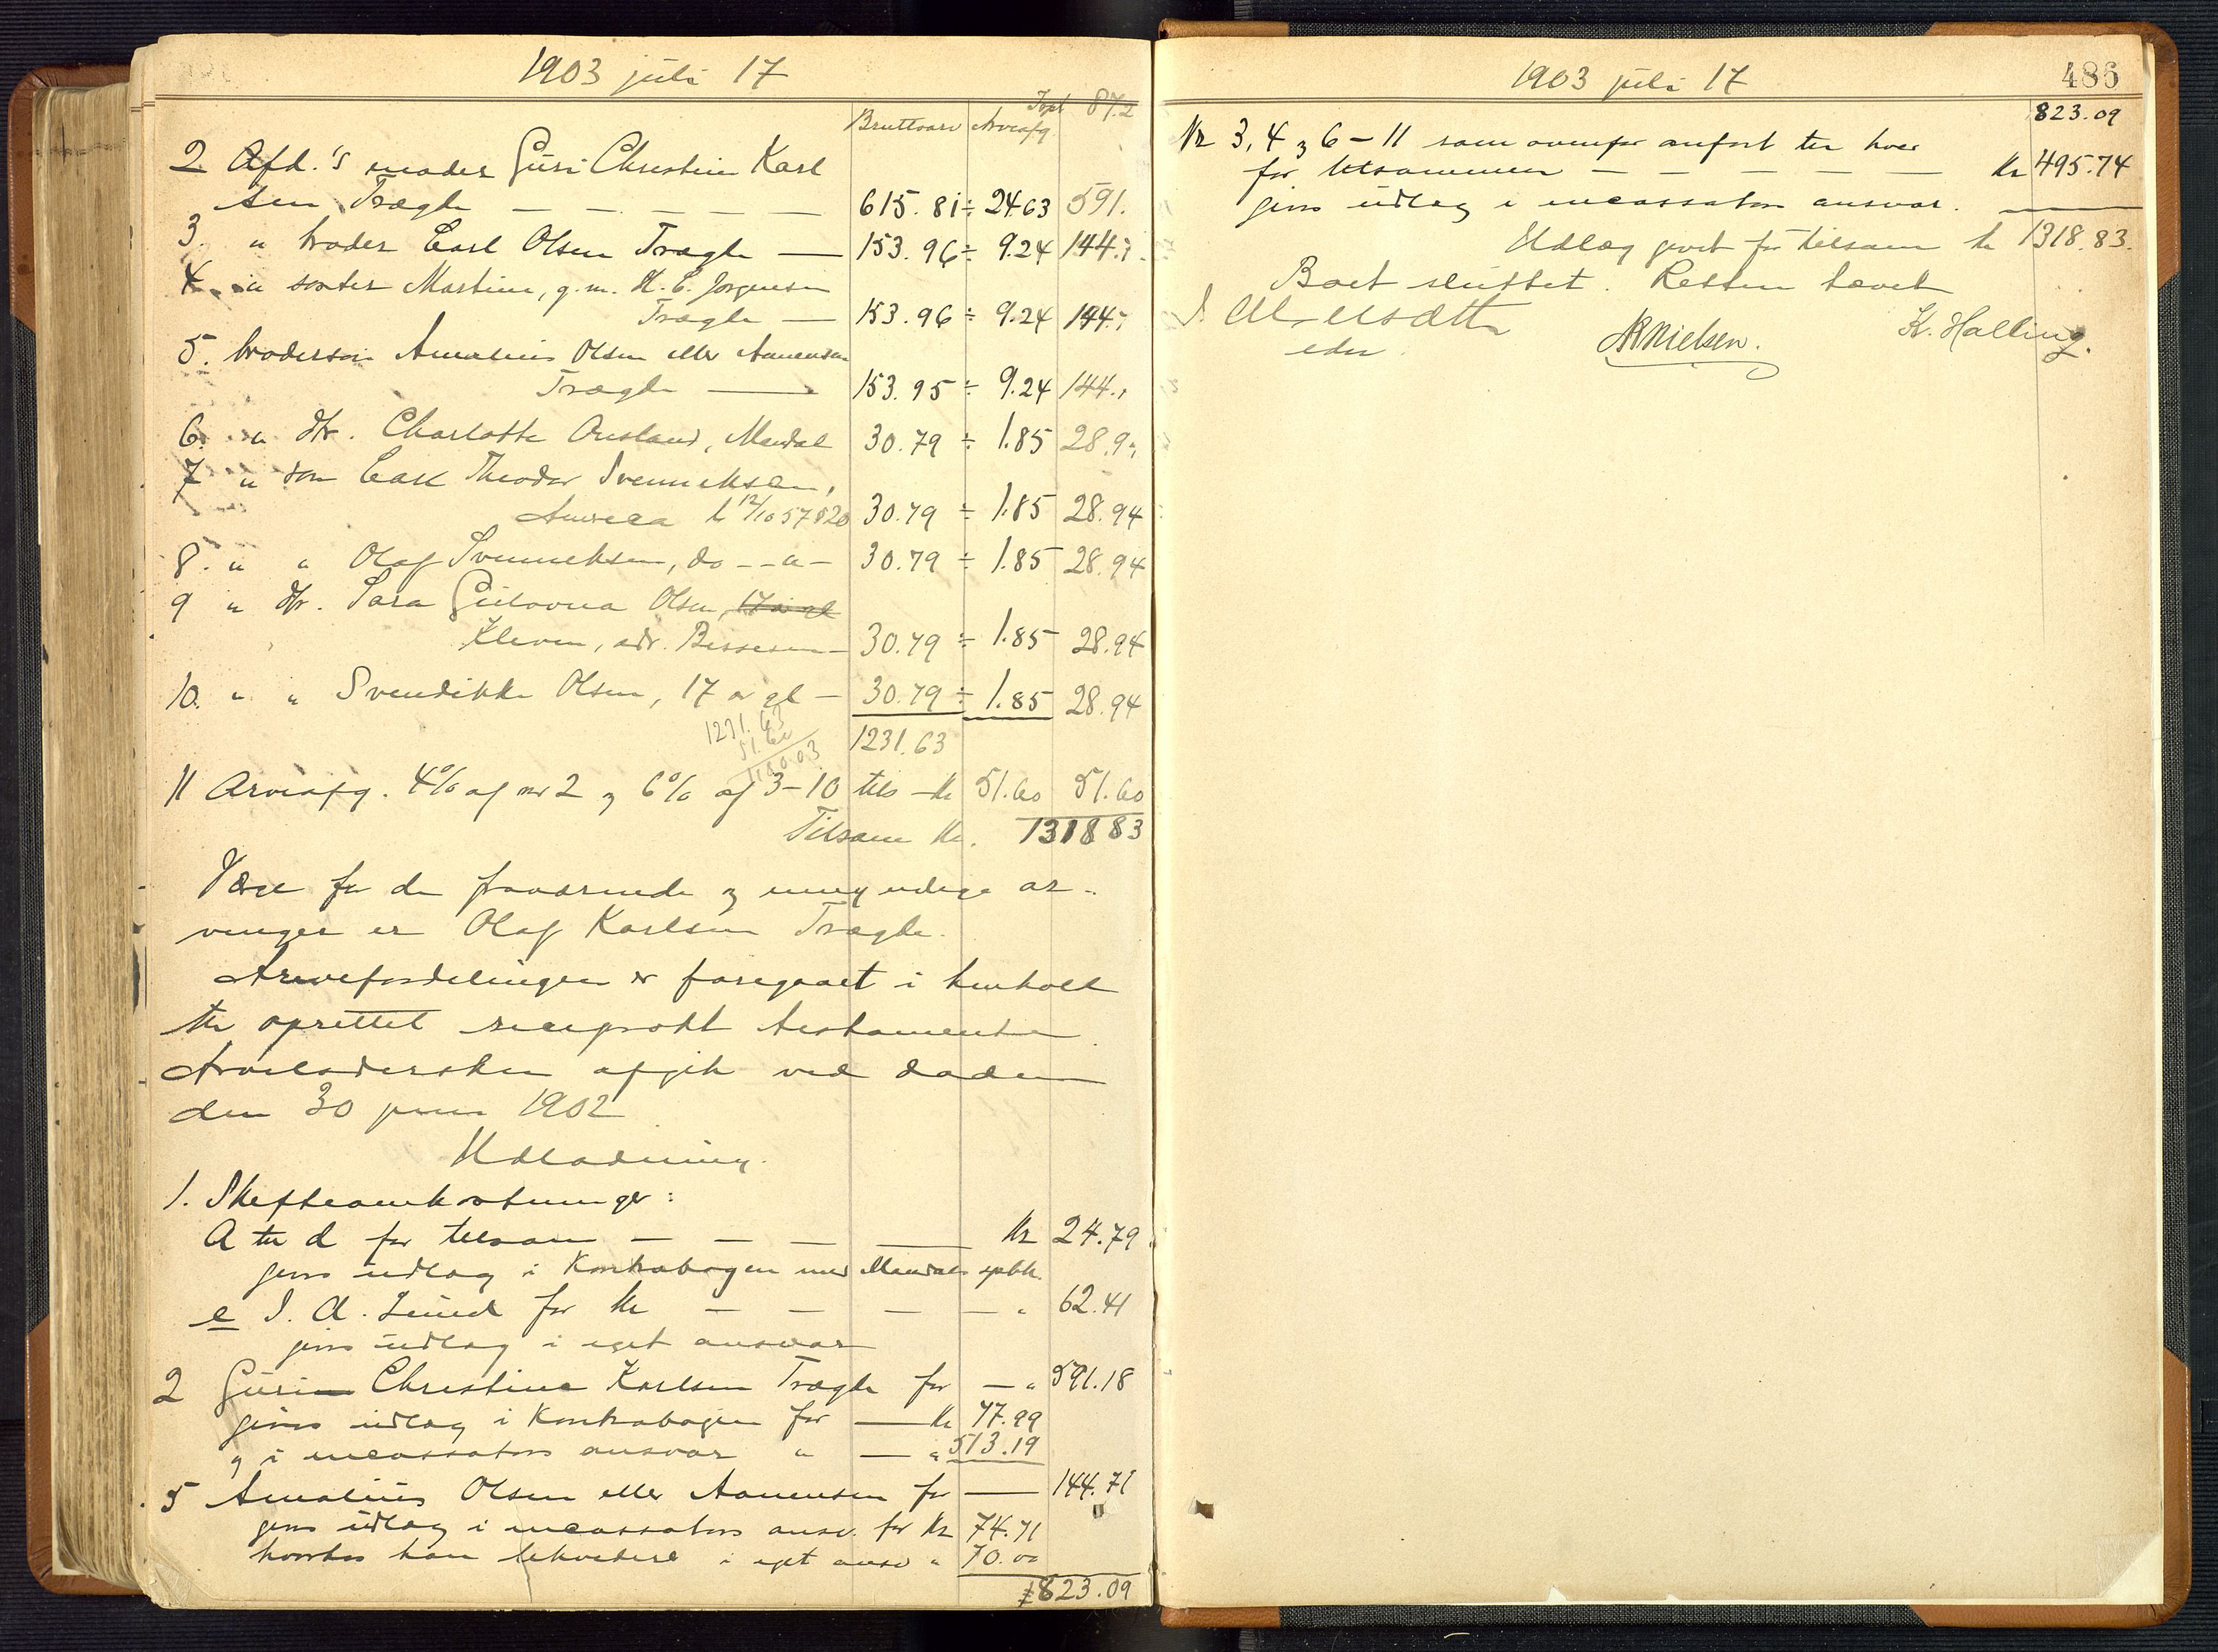 1903 juli 17
Tspt 87.2
Bruttoarv Arveafg.
2 Afd.'s moder Guri Christine Karl
sen Trægde — — — — — 615.81 ÷ 24.63 591.
3. " broder Carl Olsen Trægde — 153.96 ÷ 9.24 144.7
4. " søster Martine, g.m. H. C. Jørgensen
Trægde — 153.96 ÷ 9.24 144.7
5. brodersøn Amalius Olsen eller Aanensen
Trægde — 153.95 ÷ 9.24 144.7
6. " dtr. Charlotte Ousland, Mandal 30.79 ÷ 1.85 28.9
7 " søn Carl Theodor Svenneksen,
America 30.79 ÷ 1.85 28.94
8. " " Olaf Svenneksen, do - - " - 30.79 ÷ 1.85 28.94
9 " dtr. Sara Gulovna Olsen, 17 år gl
Kleven, adr. 30.79 ÷ 1.85 28.94
10. " " Svendikke Olsen, 17 år gl — 30.79 ÷ 1.85 28.94
1231.63
51.60
1180.03
1231.63
11 Arveafg. 4% af nr 2 og 6% af 3-10 tils - Kr 51.60 51.60
Tilsam Kr. 1318 83
Værge for de fraværende og umyndige ar-
vinger er Olaf Karlsen Trægde.
Arvefordelingen er foregaaet i henhold
til oprettet reciprokt testamente
Arveladersken afgik ved døden
den 30 juni 1902
Udlodning.
1. Skifteomkostninger:
a til d for tilsam — — — — Kr 24.79
gives udlæg i Kontrabogen med Mandals spbk.
e J. A. Lund for Kr — — — — " 62.41
gives udlæg i eget ansvar
2 Guri Christine Karlsen Trægde for — " 591.18
gives udlæg i Kontrabogen for — Kr 77.99
og i incassators ansvar " — " 513.19
5 Amalius Olsen eller Aanensen for — 144.71
gives udlæg i incassators ansv. for Kr 74.71
hvorhos han likviderer i eget ansv " 70.00
823.09
1903 juli 17
486
823.09
Nr 3, 4 og 6 - 11 som ovenfor anført til hver
for tilsammen — — — — — Kr 495.74
gives udlæg i incassators ansvar.
Udlæg givet for tilsam Kr 1318.83.
Boet sluttet. Retten hævet
edsv.
NNielsen.
K. Halling.